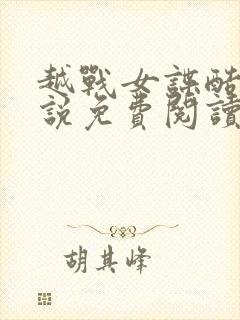 越戰女諜酷
說免費閱讀
胡其峰